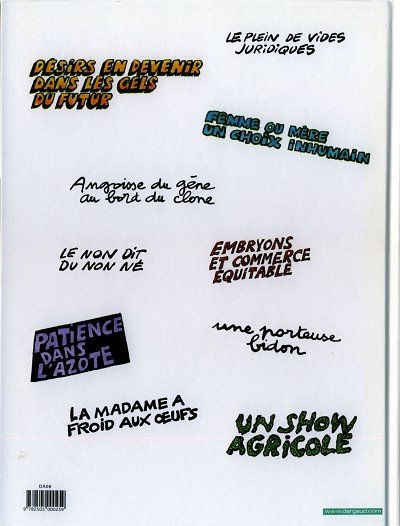 LE PLEIN DE VIDES
JURIDIQUES
DÉSIRS EN DEVENIR
DANS LES GELS
DU FUTUR
FEMME OU MÈRE
UN CHOIX INHUMAIN
Angoisse du gêne
au bord du clone
LE NON DIT
DU NON NÉ
EMBRYONS
ET COMMERCE
EQUITABLE
PATIENCE
DANS
L'AZOTE
une porteuse
bidon
LA MADAME A
FROID AUX ŒUFS
UN SHOW
AGRICOLE
DA06
9782505000259
www.dargaud.com